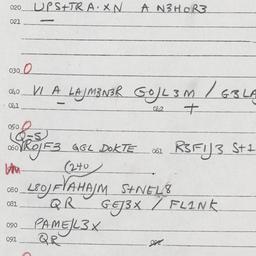 020 UPS+TRA·XN A N3HOR3
021
030 0
040 VI A LAJM3N3R GOJL3M / G3LA
041 042 +
050
(Q=S)
060 VROJF3 QGL DOKTE 061 R3FIJ3 S+1
(240
080 L80JFVAHAJM S+NEL8
081 QR GEJ3X / FL1NK
090 PAMEJL3X
091 QR